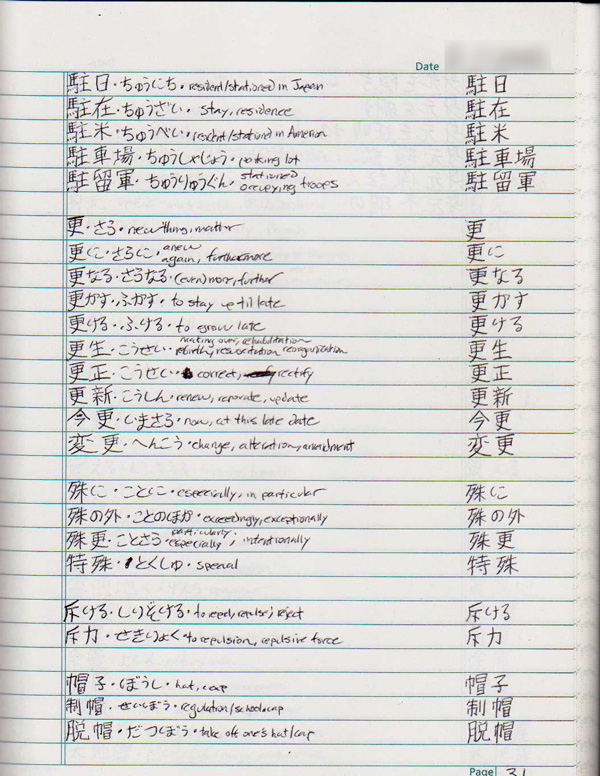 Date
駐日・ちゅうにち・resident/stationed in Japan 駐日
駐在・ちゅうざい・stay, residence 駐在
駐米・ちゅうべい・resident/stationed in America 駐米
駐車場・ちゅうしゃじょう・parking lot 駐車場
駐留軍・ちゅうりゅうぐん・stationed occupying troops 駐留軍
更・さら・new thing, matter 更
更に・さらに・anew again, furthermore 更に
更なる・さらなる・(even) more, further 更なる
更かす・ふかす・to stay up till late 更かす
更ける・ふける・to grow late 更ける
更生・こうせい・making over, rehabilitation rebirth, resuscitation reorganization 更生
更正・こうせい・correct, rectify 更正
更新・こうしん・renew, renovate, update 更新
今更・いまさら・now, at this late date 今更
変更・へんこう・change, alteration, amendment 変更
殊に・ことに・especially, in particular 殊に
殊の外・ことのほか・exceedingly, exceptionally 殊の外
殊更・ことさら・particularly, especially; intentionally 殊更
特殊・とくしゅ・special 特殊
斥ける・しりぞける・to repel, repulse, reject 斥ける
斥力・せきりょく・to repulsion, repulsive force 斥力
帽子・ぼうし・hat, cap 帽子
制帽・せいぼう・regulation/school cap 制帽
脱帽・だつぼう・take off one's hat/cap 脱帽
Page 31